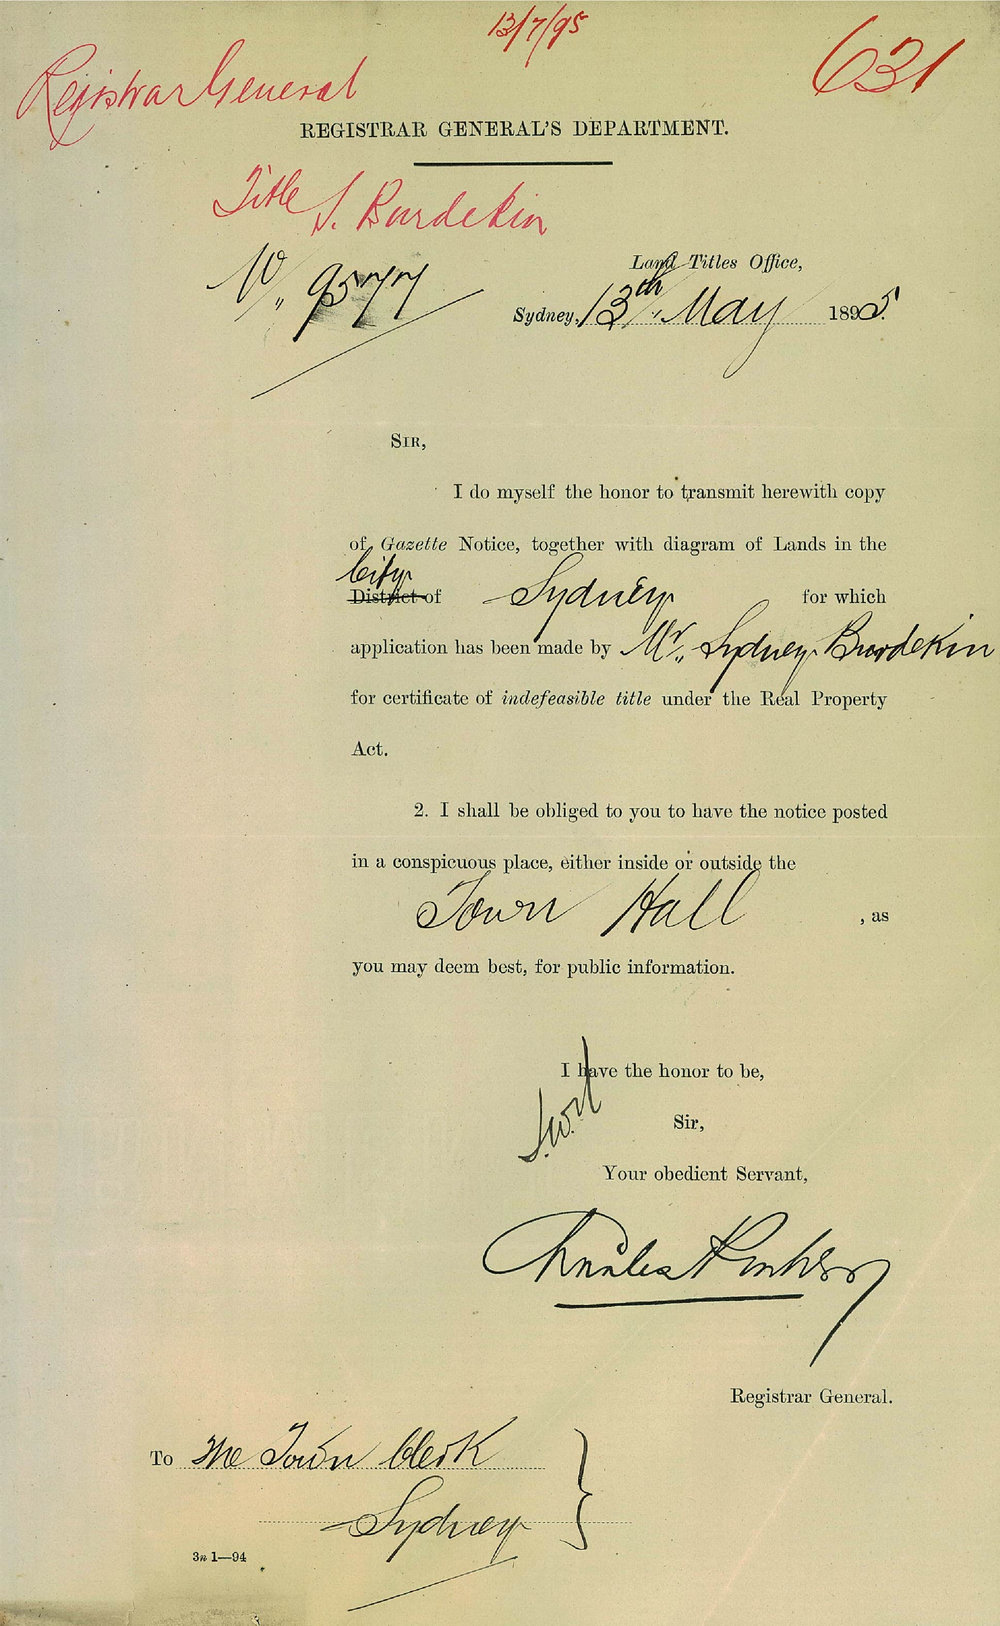 13/7/95
631
Registrar General
REGISTRAR GENERAL'S DEPARTMENT.
Title S. Burdekin
No,, 9577
Land Titles Office,
Sydney, 13th,, May 1895.
SIR,
I do myself the honor to transmit herewith copy
of Gazette Notice, together with diagram of Lands in the
City
District of Sydney for which
application has been made by Mr,, Sydney Burdekin
for certificate of indefeasible title under the Real Property
Act.
2. I shall be obliged to you to have the notice posted
in a conspicuous place, either inside or outside the
Town Hall , as
you may deem best, for public information.
I have the honor to be,
Sir,
Your obedient Servant,
Charles
Registrar General.
To The Town Clerk
Sydney
3n 1—94